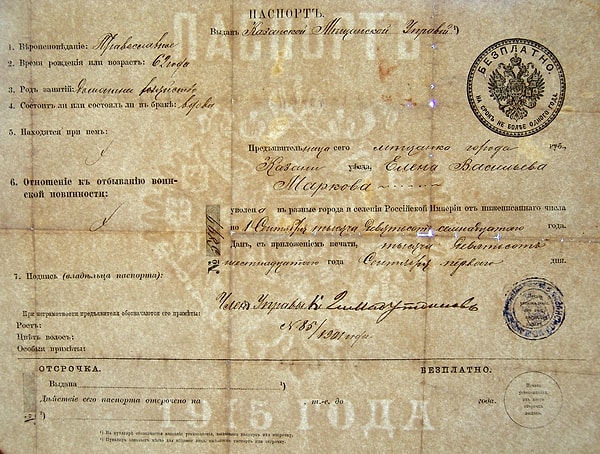 ПАСПОРТЪ.
Выданъ Казанской Мѣщанской Управой ¹)
БЕЗПЛАТНО.
НА СРОКЪ НЕ БОЛѢЕ ОДНОГО ГОДА.
1. Вѣроисповѣданіе: Православное
2. Время рожденія или возрастъ: 62 года
3. Родъ занятій: домашнее хозяйство
4. Состоитъ ли или состоялъ ли въ бракѣ: вдова
5. Находится при немъ:
Предъявительница сего мѣщанка города губ.,
Казани уѣзда, Елена Васильева
Маркова
6. Отношеніе къ отбыванію воинской повинности:
уволена въ разные города и селенія Россійской Имперіи отъ нижеписаннаго числа
по 1 Сентября тысяча девятьсотъ семнадцатаго года.
Данъ, съ приложеніемъ печати, тысяча девятьсотъ
шестнадцатаго года Сентября перваго дня.
№
7. Подпись (владѣльца паспорта):
Членъ Управы
При неграмотности предъявителя обозначаются его примѣты:
Ростъ:
Цвѣтъ волосъ:
Особыя примѣты:
ОТСРОЧКА. БЕЗПЛАТНО.
Выдана ¹)
Дѣйствіе сего паспорта отсрочено на , т.-е. до года.